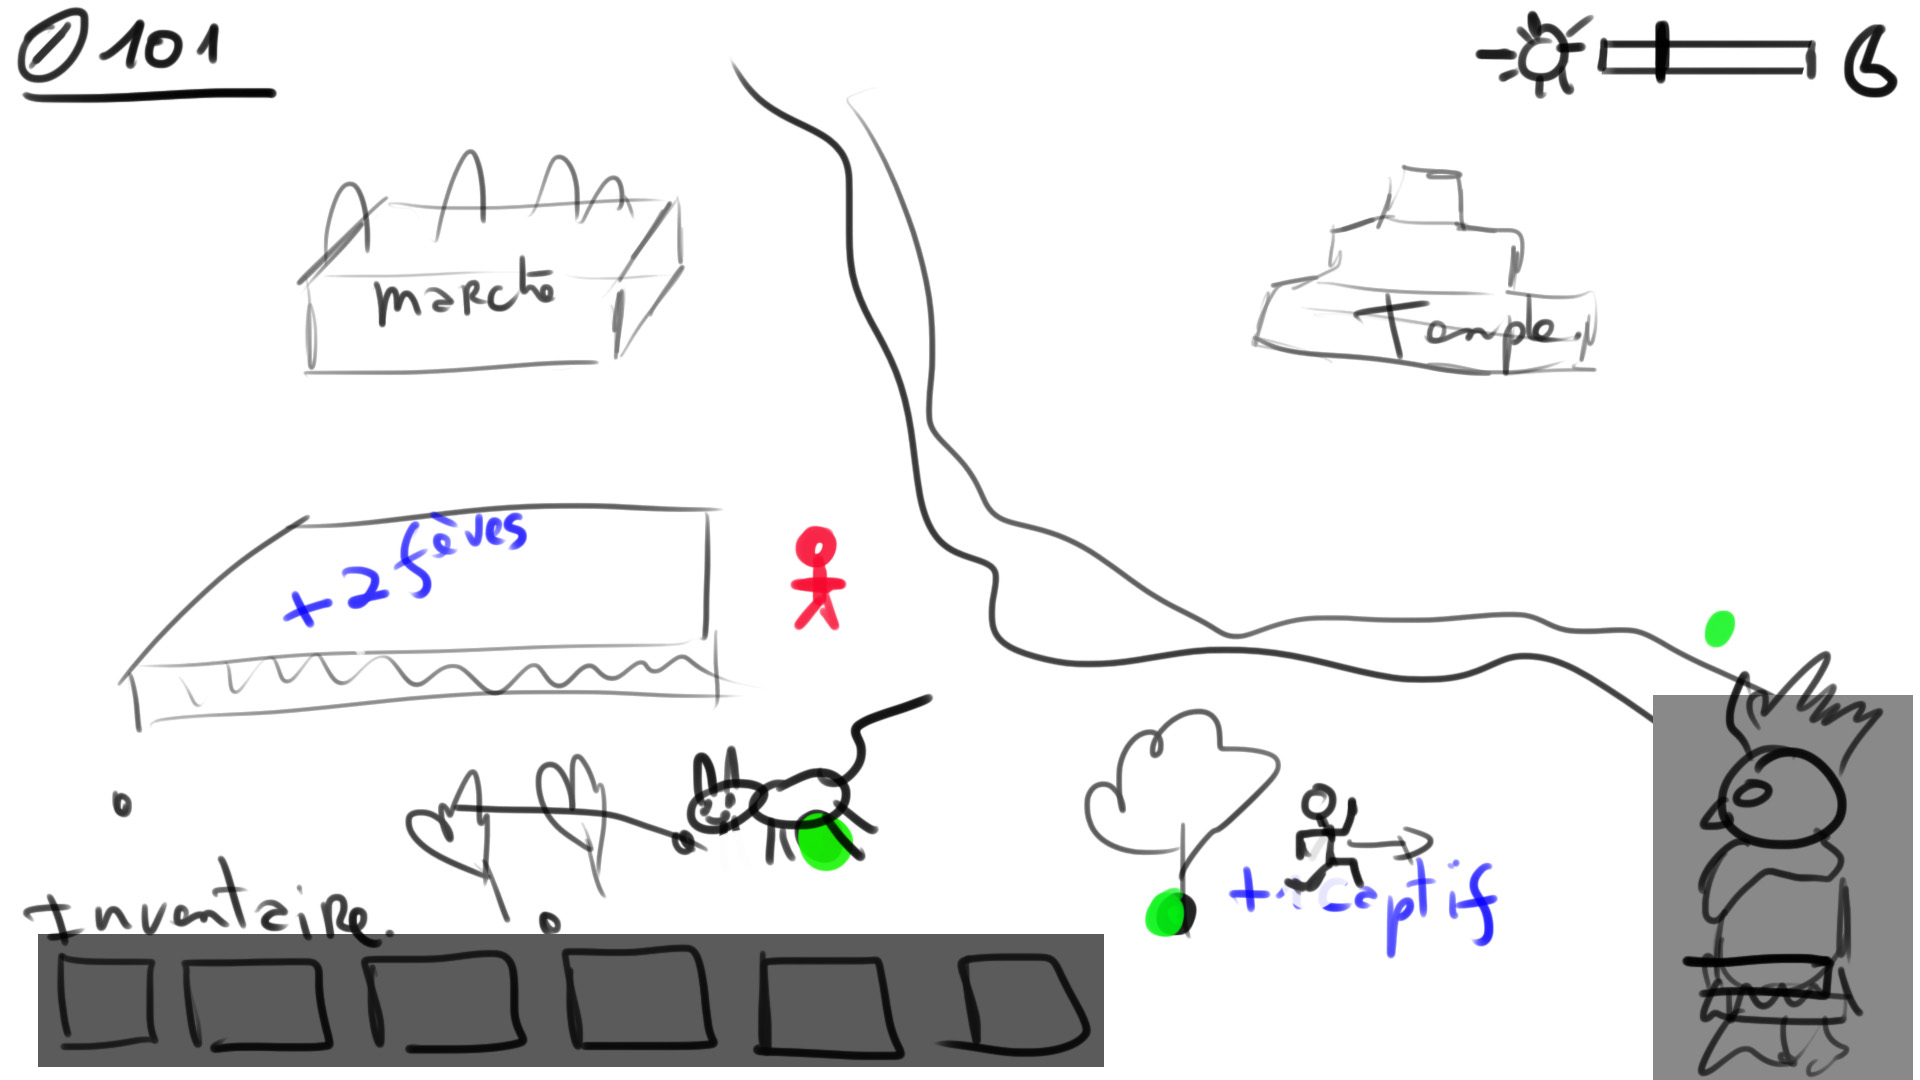 101
marché
Temple.
+2 fèves
+1 captif
Inventaire.